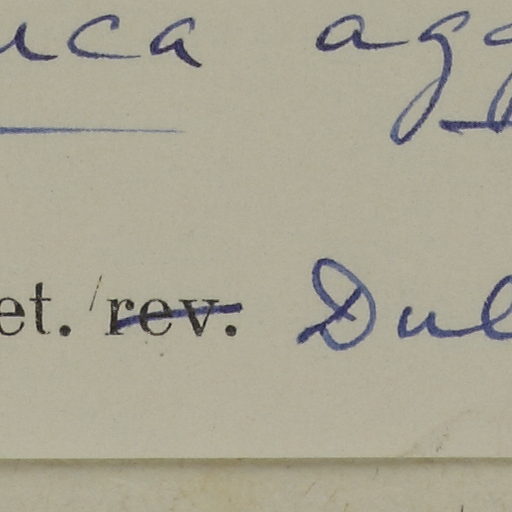 uca agg
et. / rev. Dul